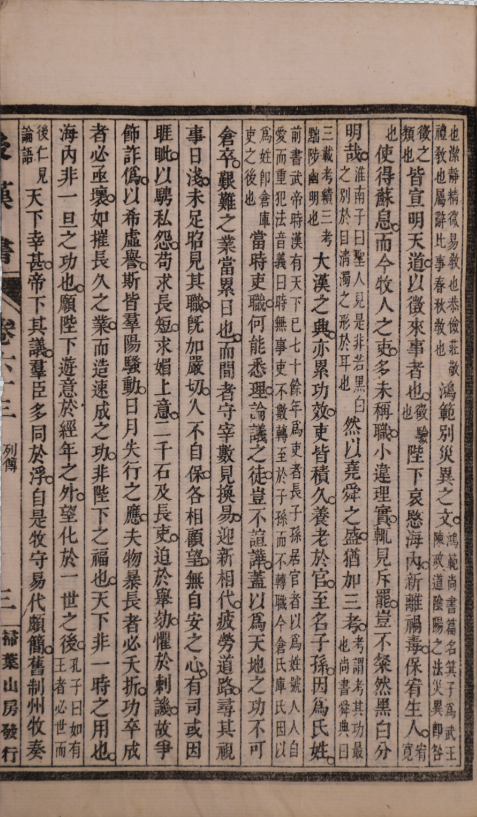 也潔靜精微易教也恭儉莊敬禮教也屬辭比事春秋教也鴻範別災異之文鴻範尚書篇名箕子為武王陳政道陰陽之法災異即咎
徵之類也皆宣明天道以徵來事者也徵驗也陛下哀愍海內新離禍毒保宥生人宥寬
也使得蘇息而今牧人之吏多未稱職小違理實輒見斥罷豈不粲然黑白分
明哉淮南子曰聖人見是非若黑白之別於目清濁之形於耳也然以堯舜之盛猶加三考考謂考其功最也尚書舜典曰
三載考績三考黜陟幽明也大漢之興亦累功效吏皆積久養老於官至名子孫因為氏姓
前書武帝時漢有天下已七十餘年為吏者長子孫居官者以為姓號人人自愛而重犯法音義曰時無事吏不數轉至於子孫而不轉職今倉氏庫氏因以
為姓即倉庫吏之後也當時吏職何能悉理論議之徒豈不諠譁蓋以為天地之功不可
倉卒艱難之業當累日也而閒者守宰數見換易迎新相代疲勞道路尋其視
事日淺未足昭見其職既加嚴切人不自保各相顧望無自安之心有司或因
睚眦以騁私怨苟求長短求媚上意二千石及長吏迫於舉劾懼於刺譏故爭
飾詐偽以希虛譽斯皆羣陽騷動日月失行之應夫物暴長者必夭折功卒成
者必亟壞如摧長久之業而造速成之功非陛下之福也天下非一時之用也
海內非一旦之功也願陛下遊意於經年之外望化於一世之後孔子曰如有王者必世而
後仁見論語天下幸甚帝下其議羣臣多同於浮自是牧守易代頗簡舊制州牧奏
後漢書 卷六十三 列傳 三 掃葉山房發行